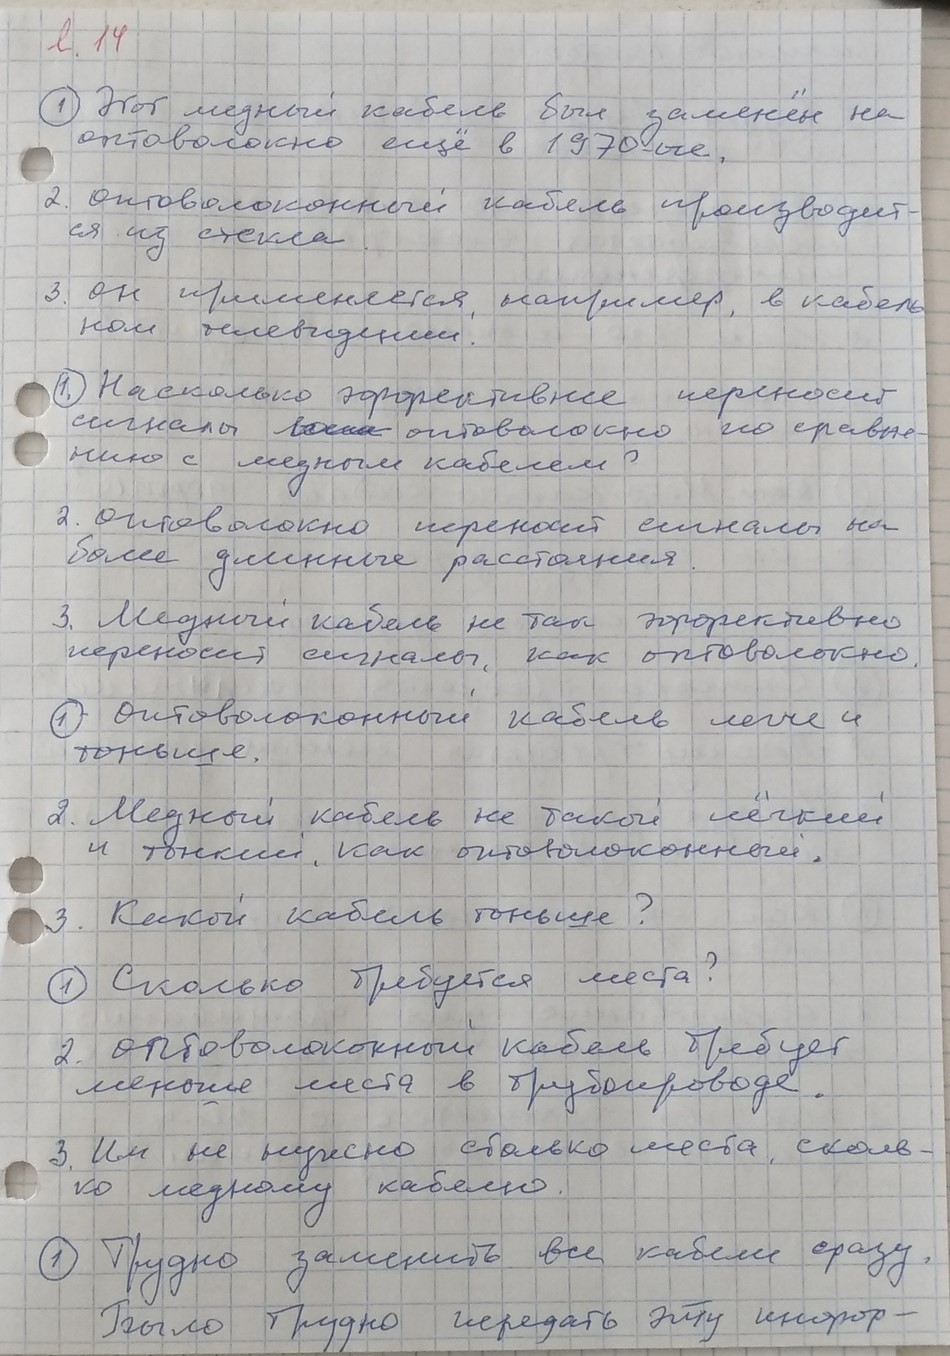 l. 14
① Этот медный кабель был заменён на
оптоволокно ещё в 1970-ые.
2. оптоволоконный кабель производит-
ся из стекла.
3. он применяется, например, в кабель
ном телевидении.
①. Насколько эффективнее переносит
сигналы оптоволокно по сравне-
нию с медным кабелем?
2. оптоволокно переносит сигналы на
более длинные расстояния.
3. Медный кабель не так эффективно
переносит сигналы, как оптоволокно.
① Оптоволоконный кабель легче и
тоньше.
2. Медный кабель не такой лёгкий
и тонкий, как оптоволоконный.
3. Какой кабель тоньше?
① Сколько требуется места?
2. оптоволоконный кабель требует
меньше места в трубопроводе.
3. Им не нужно столько места, сколь-
ко медному кабелю.
① Трудно заменить все кабели сразу.
Было трудно передать эту инфор-